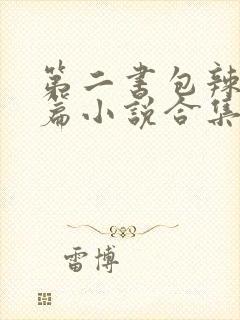 第二书包辣
篇小说合集
雷博